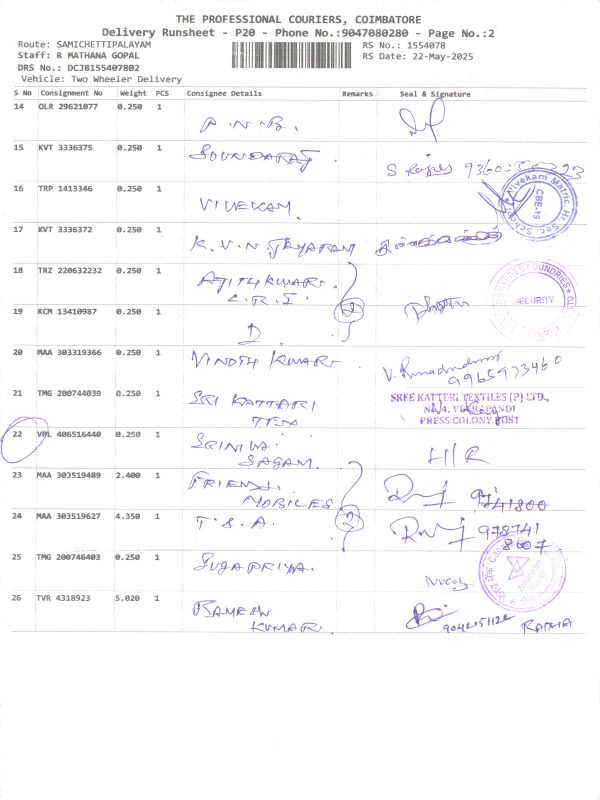 THE PROFESSIONAL COURIERS, COIMBATORE
Delivery Runsheet - P20 - Phone No.:9047080280 - Page No.:2
Route: SAMICHETTIPALAYAM RS No.: 1554078
Staff: R MATHANA GOPAL RS Date: 22-May-2025
DRS No.: DCJB155407802
Vehicle: Two Wheeler Delivery
S No Consignment No Weight PCS Consignee Details Remarks Seal & Signature
14 OLR 29621077 0.250 1
P.N.B.
15 KVT 3336375 0.250 1
SOUNDARAJ
16 TRP 1413346 0.250 1
VIVEKAM.
Vivekam Matric. Hr. Sec. School
CBE-19
17 KVT 3336372 0.250 1
K.V.N. JAYARAM
18 TRZ 220632232 0.250 1
AJITHKUMAR.
L.R.I. 2
FOUNDRIES
SECURITY
19 KCM 13410987 0.250 1
D.
20 MAA 303319366 0.250 1
VINOTH KUMAR
9965973460
21 TMG 200744039 0.250 1
SRI KATTARI
TEX
SREE KATTERI TEXTILES (P) LTD.,
PRESS COLONY POST
22 VPL 406516440 0.250 1
SRINIVA
SAGAM. H/R
23 MAA 303519489 2.400 1
FRIENDS
MOBILES
24 MAA 303519627 4.350 1
T.S.A. 2 978741
8607
25 TMG 200746403 0.250 1
SUGAPRIYA.
26 TVR 4318923 5.020 1
RAMESH
KUMAR. RADHA